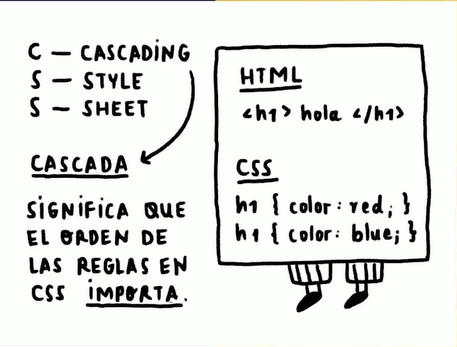 C — CASCADING
S — STYLE
S — SHEET
CASCADA
SIGNIFICA QUE
EL ORDEN DE
LAS REGLAS EN
CSS IMPORTA.
HTML
<h1> hola </h1>
CSS
h1 { color: red; }
h1 { color: blue; }